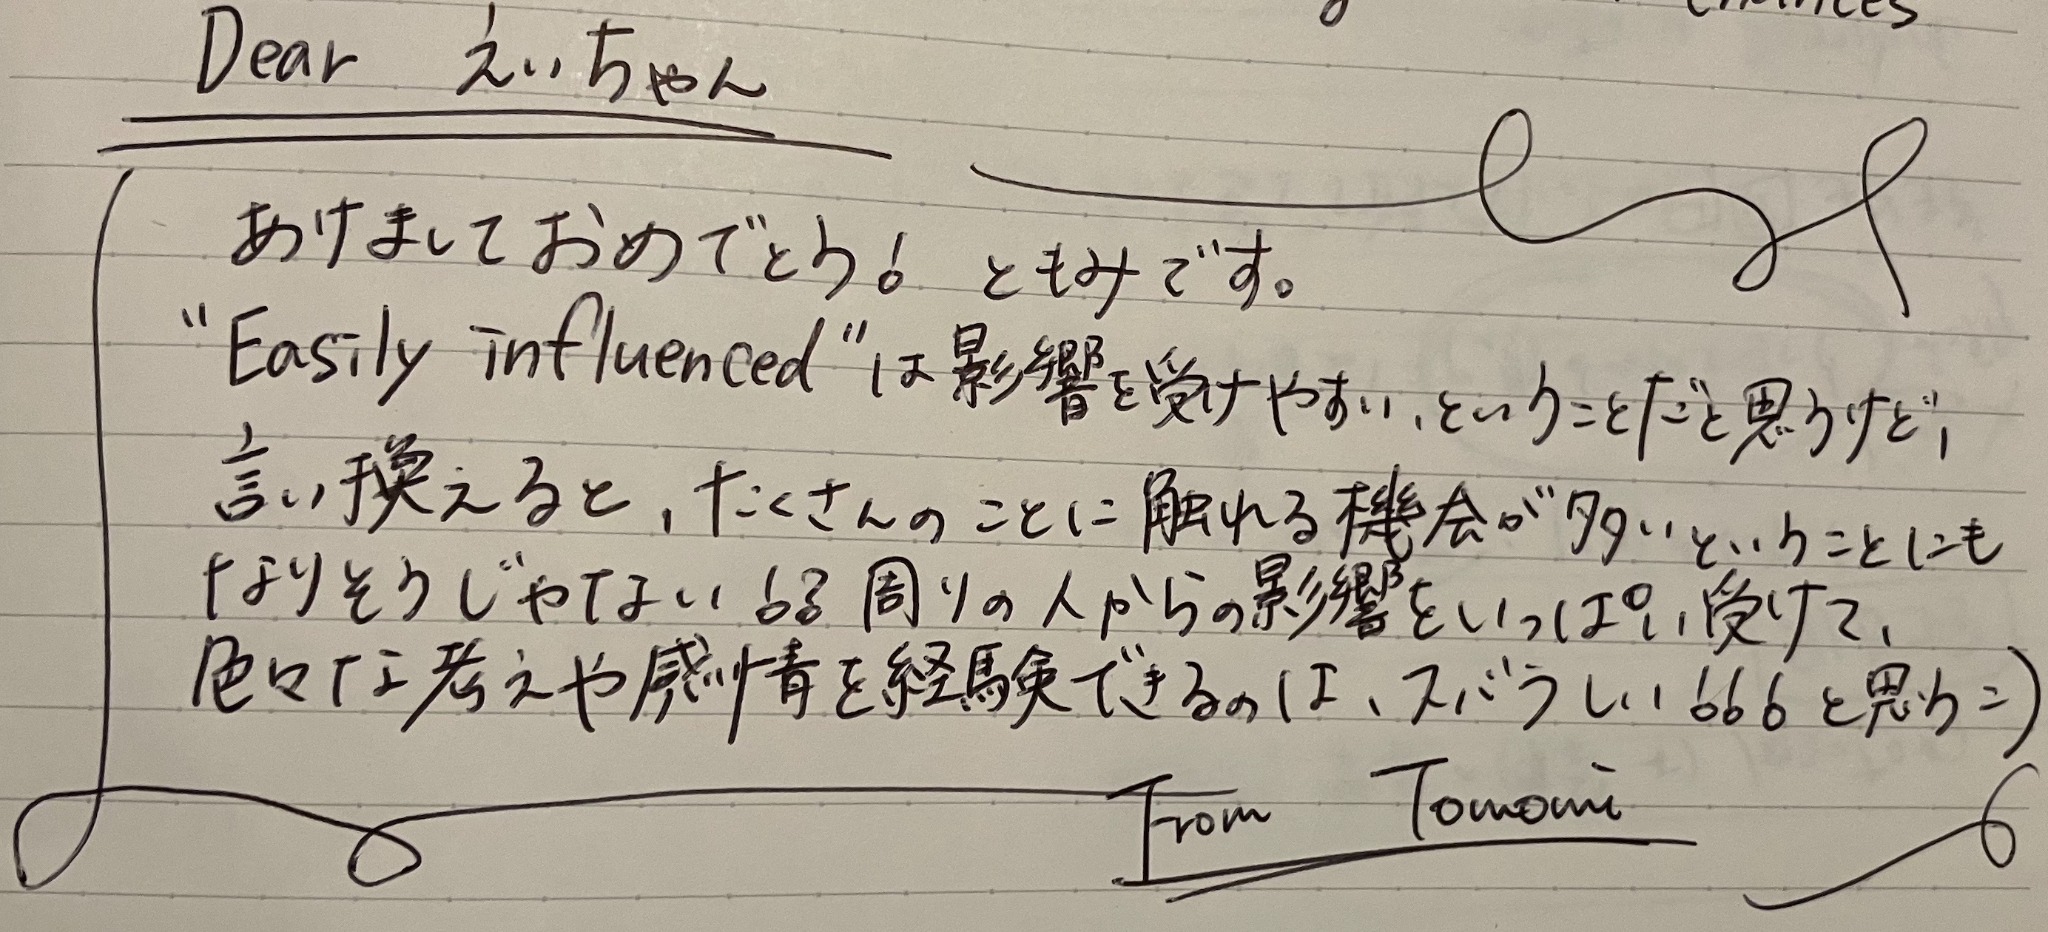 chances
Dear えいちゃん
あけましておめでとう! ともみです。
"Easily influenced"は影響を受けやすい、ということだと思うけど、
言い換えると、たくさんのことに触れる機会が多いということにも
なりそうじゃない!? 周りの人からの影響をいっぱい受けて、
色々な考えや感情を経験できるのは、スバラしい!!! と思う=)
From Tomomi